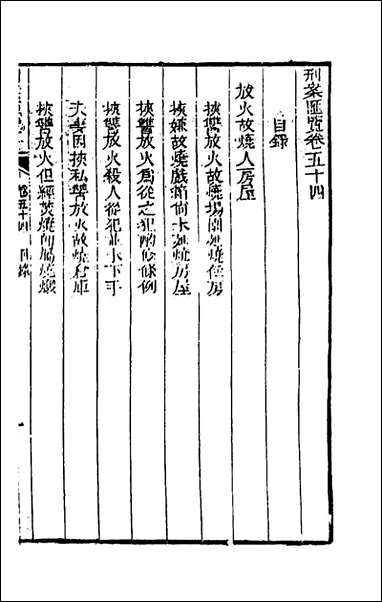 刑案匯覽卷五十四
目錄
放火故燒人房屋
挾讐放火故燒場園延燒住房
挾嫌故燒戲箱尚未延燒房屋
挾讐放火為從之犯酌修條例
挾讐放火殺人從犯並未下手
夫妻因挾私讐放火故燒倉庫
挾讐放火但經焚燒尚屬燒燬
卷五十四 目錄